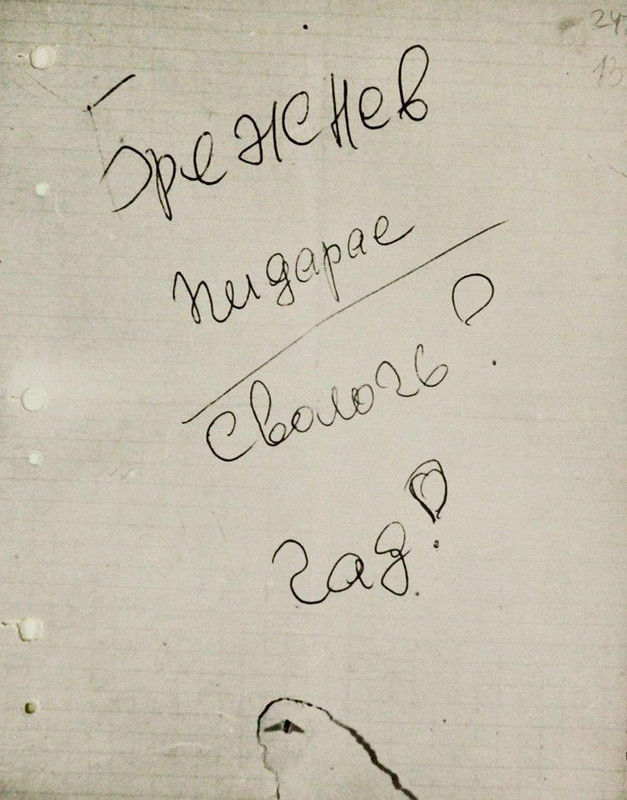 247
13
Брежнев
пидарас
сволочь!
гад!